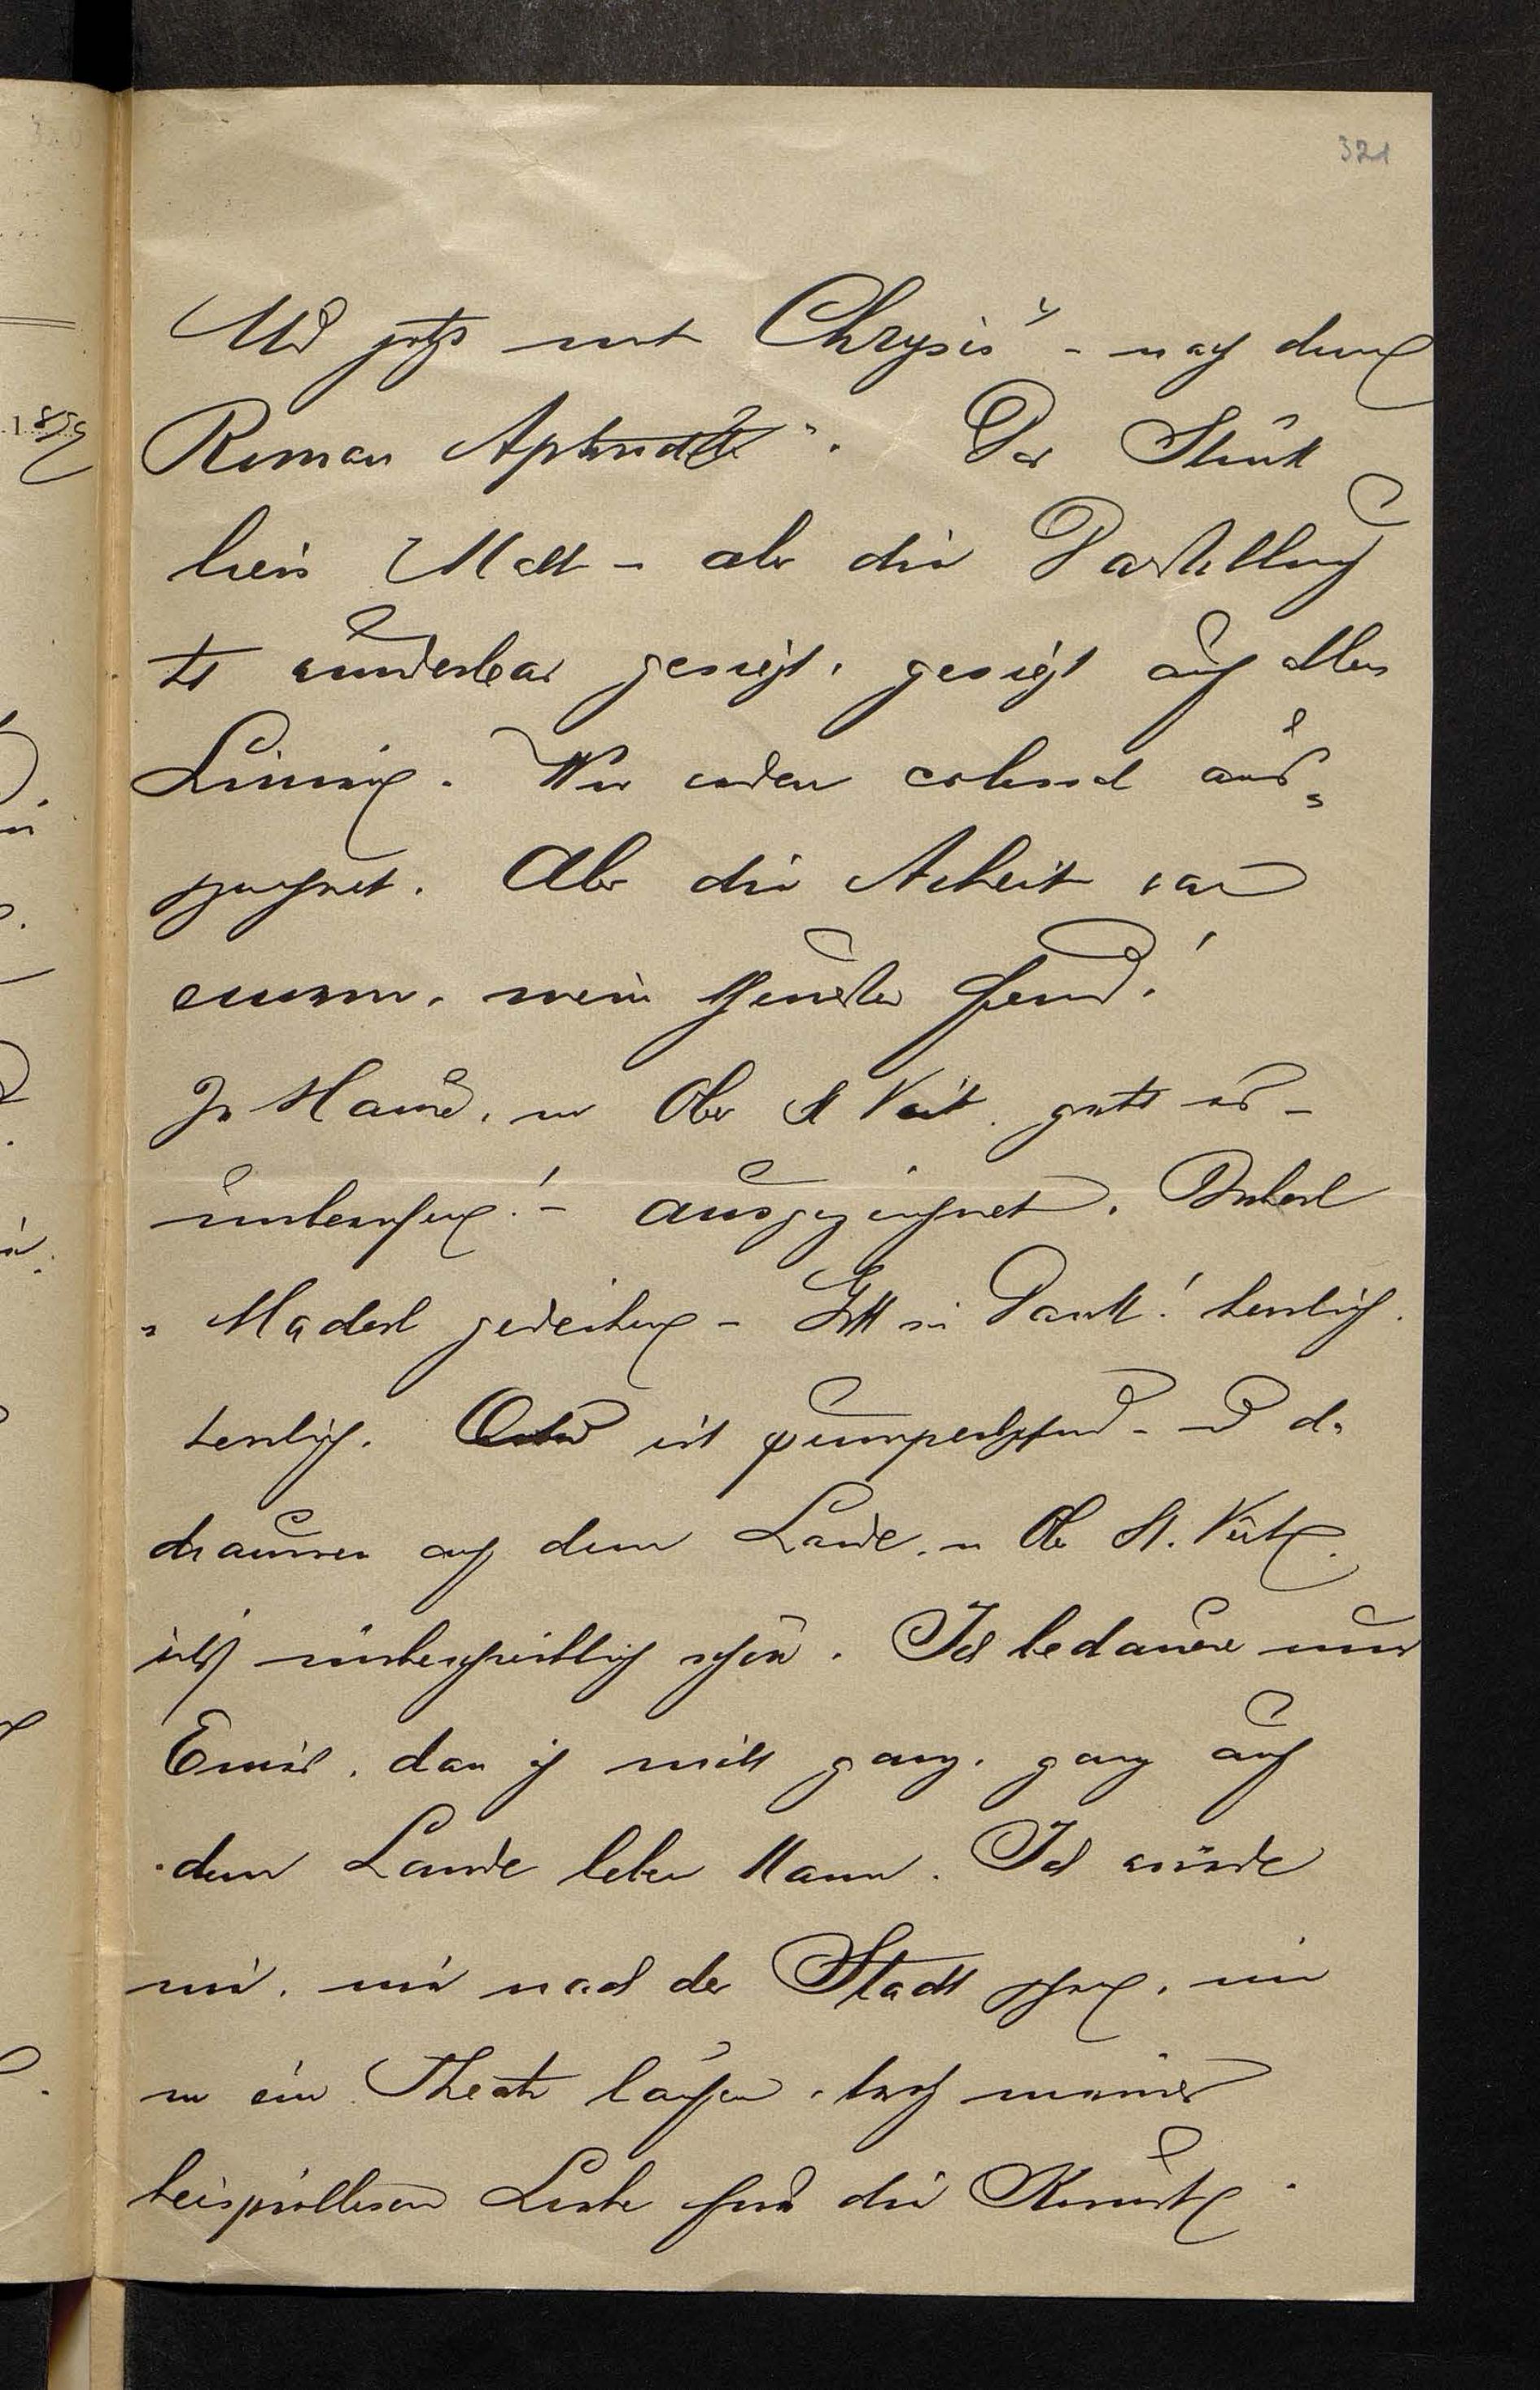 321
Und jetzt mit "Chrysis" - nach dem
Roman Aphrodite". Das Stück
liess kalt - aber die Darstellung
hat wunderbar gesiegt, gesiegt auf allen
Linien. Wir wurden colossal aus=
gezeichnet. Aber die Arbeit war
enorm, mein theuerster Freund!
Zu Hause, in Ober St Veit. geht es -
unberufen! - ausgezeichnet. Buberl
u Maderl gedeihen - Gott sei Dank! herrlich.
herrlich. ist pumperlgesund - und da
draussen auf dem Lande, in Ober St. Veit
ists unbeschreiblich schön. Ich bedauere nur
Emil, dass ich nicht ganz, ganz auf
dem Lande leben kann. Ich würde
nie, nie nach der Stadt gehen, nie
in ein Theater laufen, trotz meiner
beispiellosen Liebe für die Kunst.
185